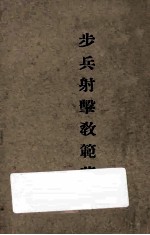 步兵射擊教範